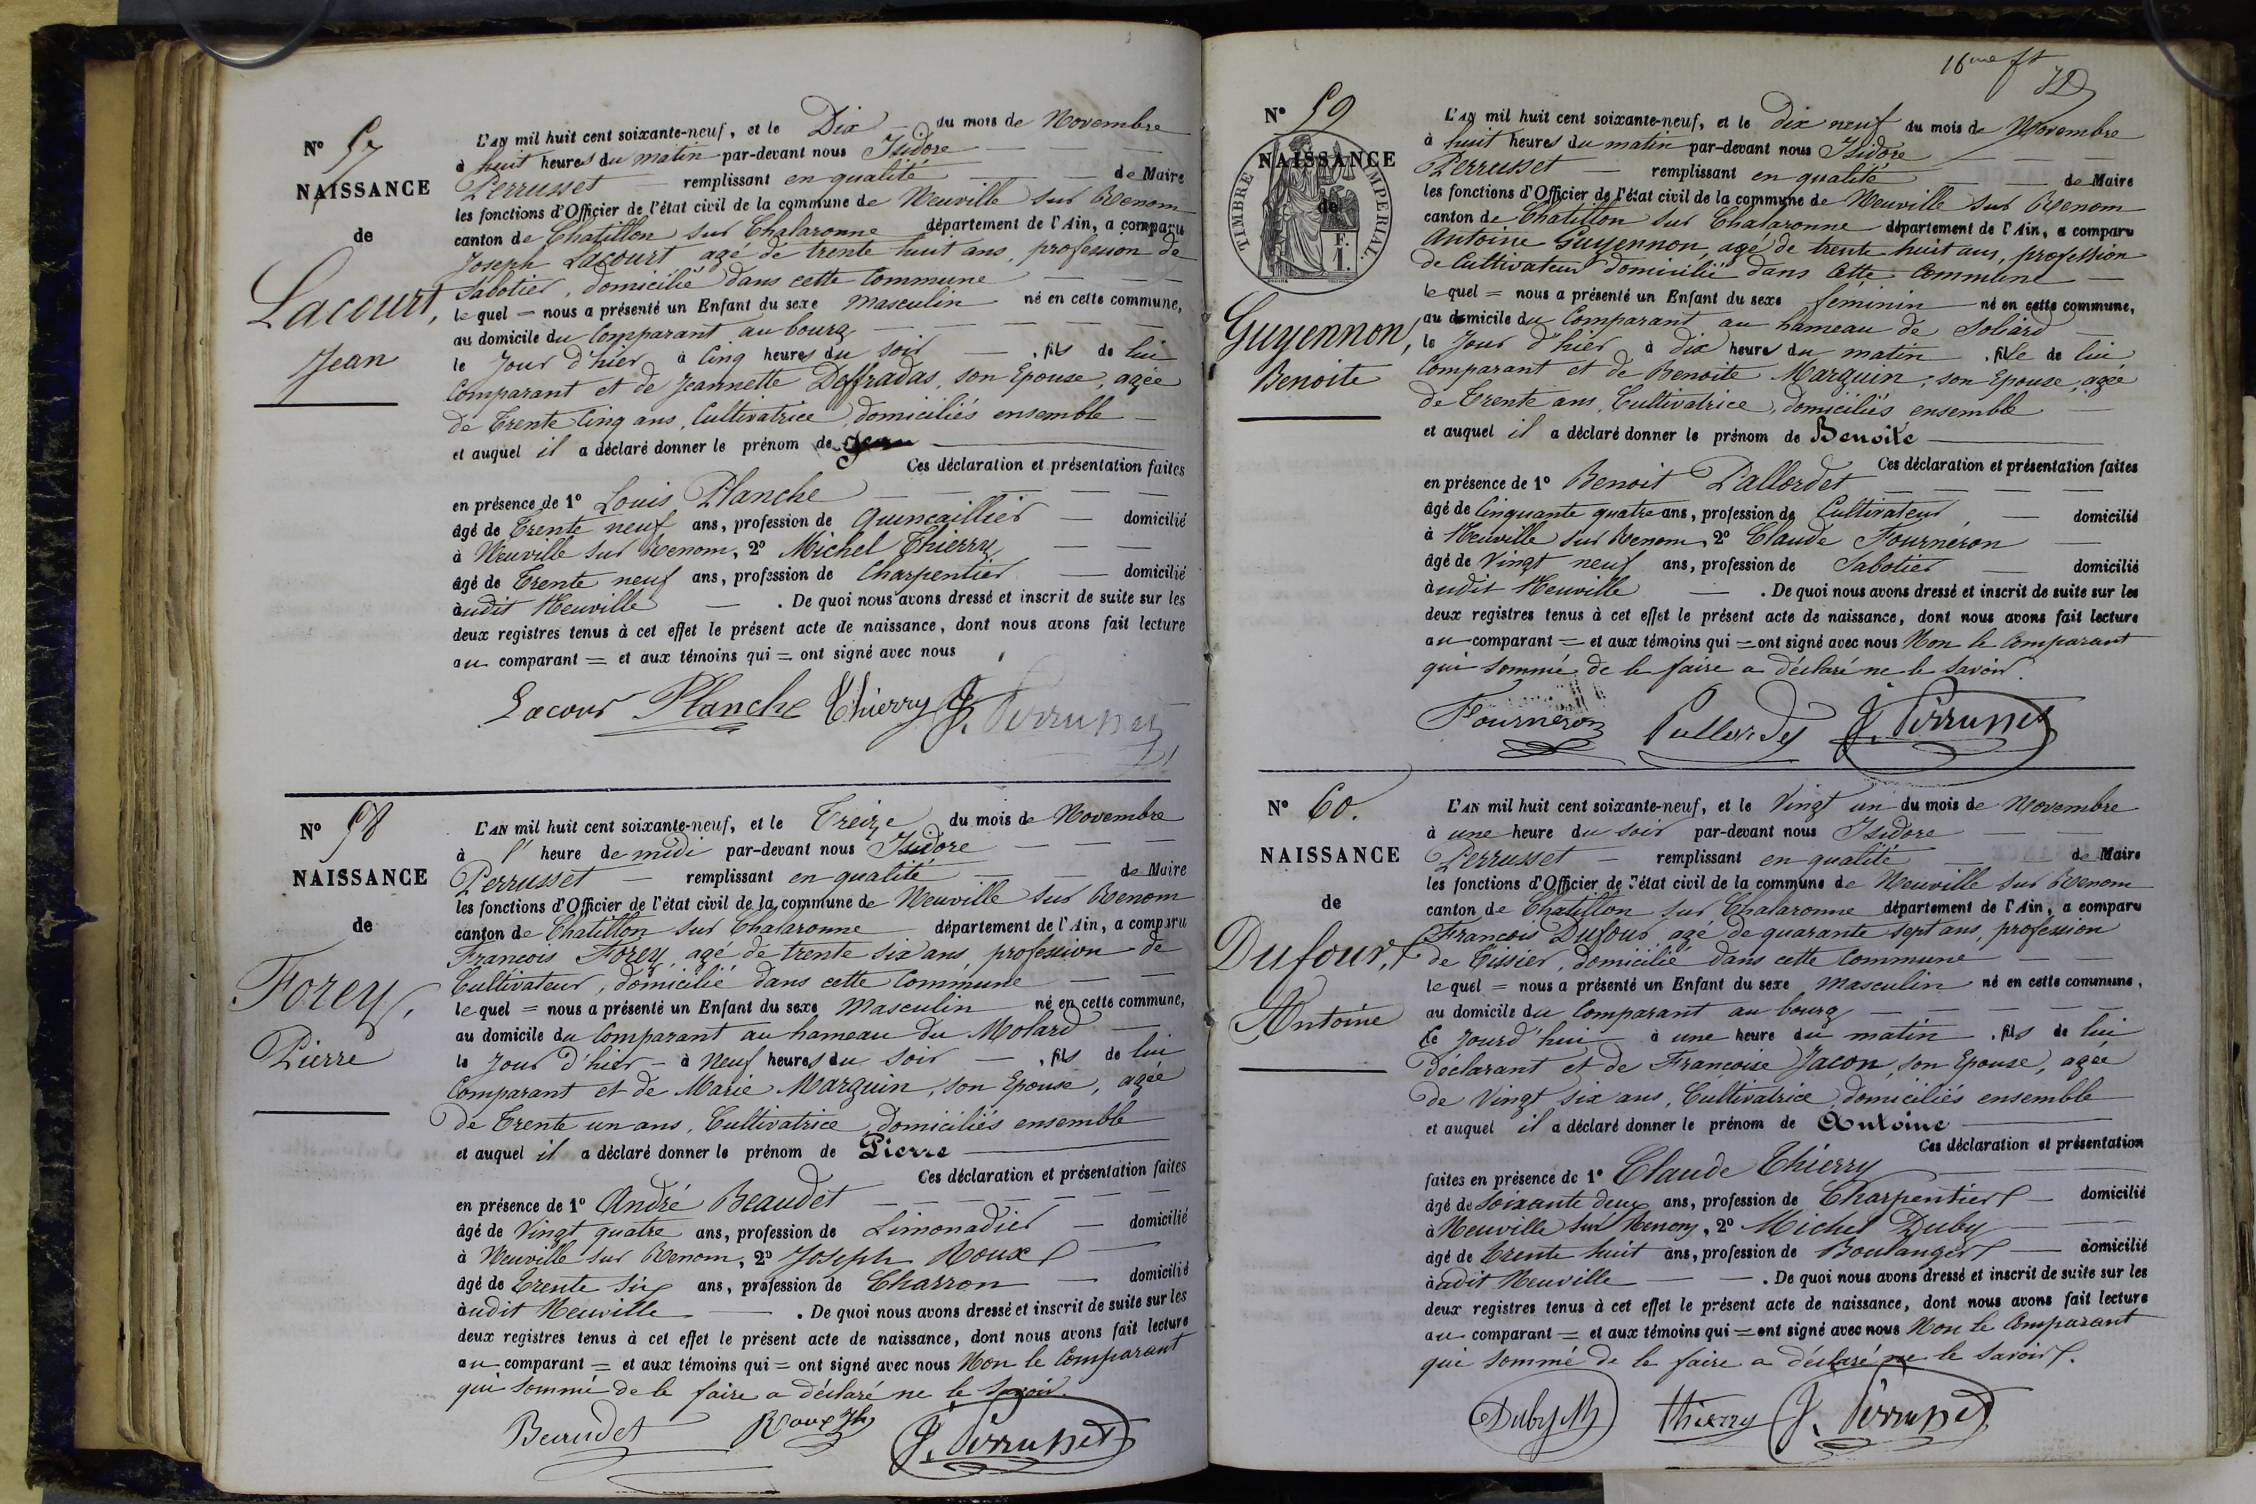 Nº 57
NAISSANCE
de
Lacourt,
Jean
L'AN mil huit cent soixante-neuf, et le Dix du mois de Novembre
à huit heures du matin par-devant nous Isidore
Perrusset remplissant en qualité de Maire
les fonctions d'Officier de l'état civil de la commune de Neuville sur Renom
canton de Chatillon sur Chalaronne département de l'Ain, a comparu
Joseph Lacourt agé de trente huit ans, profession de
Sabotier, domicilié dans cette Commune
lequel = nous a présenté un Enfant du sexe masculin né en cette commune,
au domicile du Comparant au bourg
le Jour d'hier à Cinq heures du soir, fils de lui
Comparant et de Jeannette Deffradas, son Epouse, agée
de Trente Cinq ans, Cultivatrice, domiciliés ensemble
et auquel il a déclaré donner le prénom de Jean
Ces déclaration et présentation faites
en présence de 1º Louis Planche
âgé de Trente neuf ans, profession de Quincaillier domicilié
à Neuville sur Renom, 2º Michel Thierry
âgé de Trente neuf ans, profession de Charpentier domicilié
àudit Neuville. De quoi nous avons dressé et inscrit de suite sur les
deux registres tenus à cet effet le présent acte de naissance, dont nous avons fait lecture
au comparant = et aux témoins qui = ont signé avec nous
Lacour Planche Thierry J. Perrusset
Nº 58
NAISSANCE
de
Forey,
Pierre
L'AN mil huit cent soixante-neuf, et le Treize du mois de Novembre
à l' heure de midi par-devant nous Isidore
Perrusset remplissant en qualité de Maire
les fonctions d'Officier de l'état civil de la commune de Neuville sur Renom
canton de Chatillon sur Chalaronne département de l'Ain, a comparu
Francois Forey, agé de trente six ans, profession de
Cultivateur, domicilié dans cette Commune
lequel = nous a présenté un Enfant du sexe Masculin né en cette commune,
au domicile du Comparant au hameau du Molard
le Jour d'hier à Neuf heures du soir, fils de lui
Comparant et de Marie Marguin, son Epouse, agée
de Trente un ans, Cultivatrice, domiciliés ensemble
et auquel il a déclaré donner le prénom de Pierre
Ces déclaration et présentation faites
en présence de 1º André Beaudet
âgé de Vingt quatre ans, profession de Limonadier domicilié
à Neuville sur Renom, 2º Joseph Roux
âgé de Trente six ans, profession de Charron domicilié
àudit Neuville. De quoi nous avons dressé et inscrit de suite sur les
deux registres tenus à cet effet le présent acte de naissance, dont nous avons fait lecture
au comparant = et aux témoins qui = ont signé avec nous Non le Comparant
qui sommé de le faire a déclaré ne le savoir.
Beaudet Roux Jh J. Perrusset
16me ft
72
Nº 59
NAISSANCE
de
TIMBRE IMPERIAL
F.
1.
Guyennon,
Benoite
L'AN mil huit cent soixante-neuf, et le dix neuf du mois de Novembre
à huit heures du matin par-devant nous Isidore
Perrusset remplissant en qualité de Maire
les fonctions d'Officier de l'état civil de la commune de Neuville sur Renom
canton de Chatillon sur Chalaronne département de l'Ain, a comparu
Antoine Guyennon, agé de trente huit ans, profession
de Cultivateur domicilié dans cette Commune
lequel = nous a présenté un Enfant du sexe féminin né en cette commune,
au domicile du Comparant au hameau de Soliard
le Jour d'hier à dix heures du matin, fille de lui
Comparant et de Benoite Marguin, son Epouse, agée
de Trente ans, Cultivatrice, domiciliés ensemble
et auquel il a déclaré donner le prénom de Benoite
Ces déclaration et présentation faites
en présence de 1º Benoit Pallordet
âgé de Cinquante quatre ans, profession de Cultivateur, domicilié
à Neuville sur Renom, 2º Claude Fourneron
âgé de Vingt neuf ans, profession de Sabotier domicilié
àudit Neuville. De quoi nous avons dressé et inscrit de suite sur les
deux registres tenus à cet effet le présent acte de naissance, dont nous avons fait lecture
au comparant = et aux témoins qui = ont signé avec nous Non le Comparant
qui sommé de le faire a déclaré ne le savoir.
Fourneron J. Perrusset
Nº 60.
NAISSANCE
de
Dufour,
Antoine
L'AN mil huit cent soixante-neuf, et le Vingt un du mois de Novembre
à une heure du soir par-devant nous Isidore
Perrusset remplissant en qualité de Maire
les fonctions d'Officier de l'état civil de la commune de Neuville sur Renom
canton de Chatillon sur Chalaronne département de l'Ain, a comparu
Francois Dufour, agé de quarante sept ans, profession
de Tissier, domicilié dans cette Commune
lequel = nous a présenté un Enfant du sexe Masculin né en cette commune,
au domicile du Comparant au bourg
Ce Jourd'hui à une heure du matin, fils de lui
déclarant et de Françoise Jacon, son Epouse, agée
de Vingt six ans, Cultivatrice, domiciliés ensemble
et auquel il a déclaré donner le prénom de Antoine
Ces déclaration et présentation
faites en présence de 1º Claude Thierry
âgé de Soixante deux ans, profession de Charpentier domicilié
à Neuville sur Renom, 2º Michel Duby
âgé de Trente huit ans, profession de Boulanger domicilié
àudit Neuville. De quoi nous avons dressé et inscrit de suite sur les
deux registres tenus à cet effet le présent acte de naissance, dont nous avons fait lecture
au comparant = et aux témoins qui = ont signé avec nous Non le Comparant
qui sommé de le faire a déclaré ne le savoir.
Duby M thierry J. Perrusset